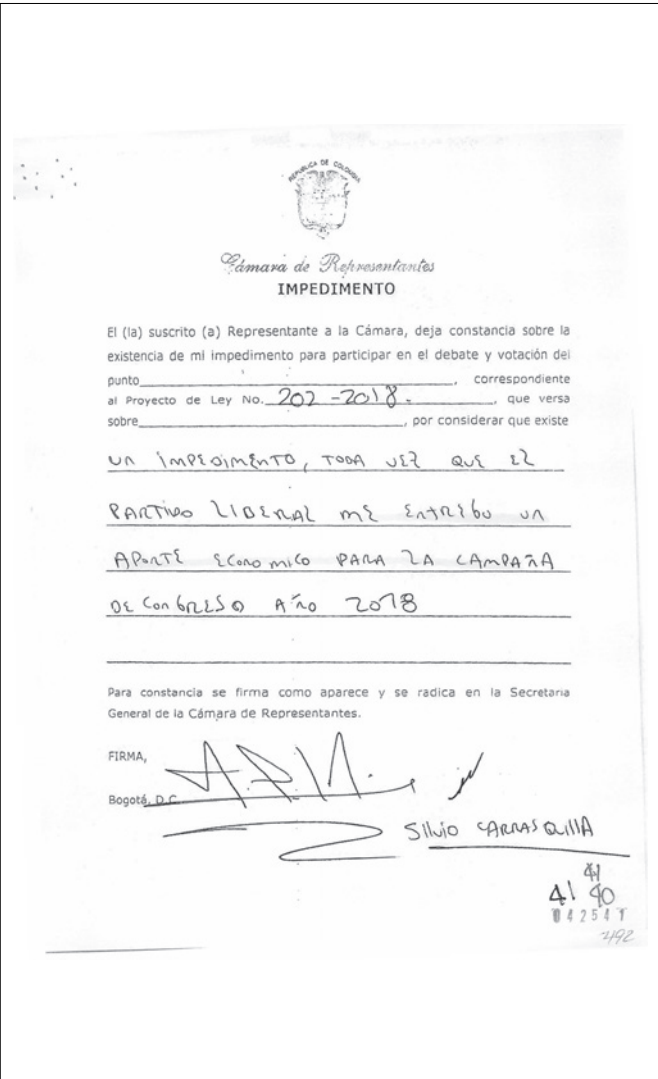 REPUBLICA DE COLOMBIA
Cámara de Representantes
IMPEDIMENTO
El (la) suscrito (a) Representante a la Cámara, deja constancia sobre la
existencia de mi impedimento para participar en el debate y votación del
punto____, correspondiente
al Proyecto de Ley No. 202-2018., que versa
sobre____, por considerar que existe
UN IMPEDIMENTO, TODA VEZ QUE EL
PARTIDO LIBERAL ME ENTREGO UN
APORTE ECONOMICO PARA LA CAMPAÑA
DE CONGRESO AÑO 2018
Para constancia se firma como aparece y se radica en la Secretaria
General de la Cámara de Representantes.
FIRMA,
Bogotá, D.C.
SILVIO CARRASQUILLA
41
41 40
042541
492